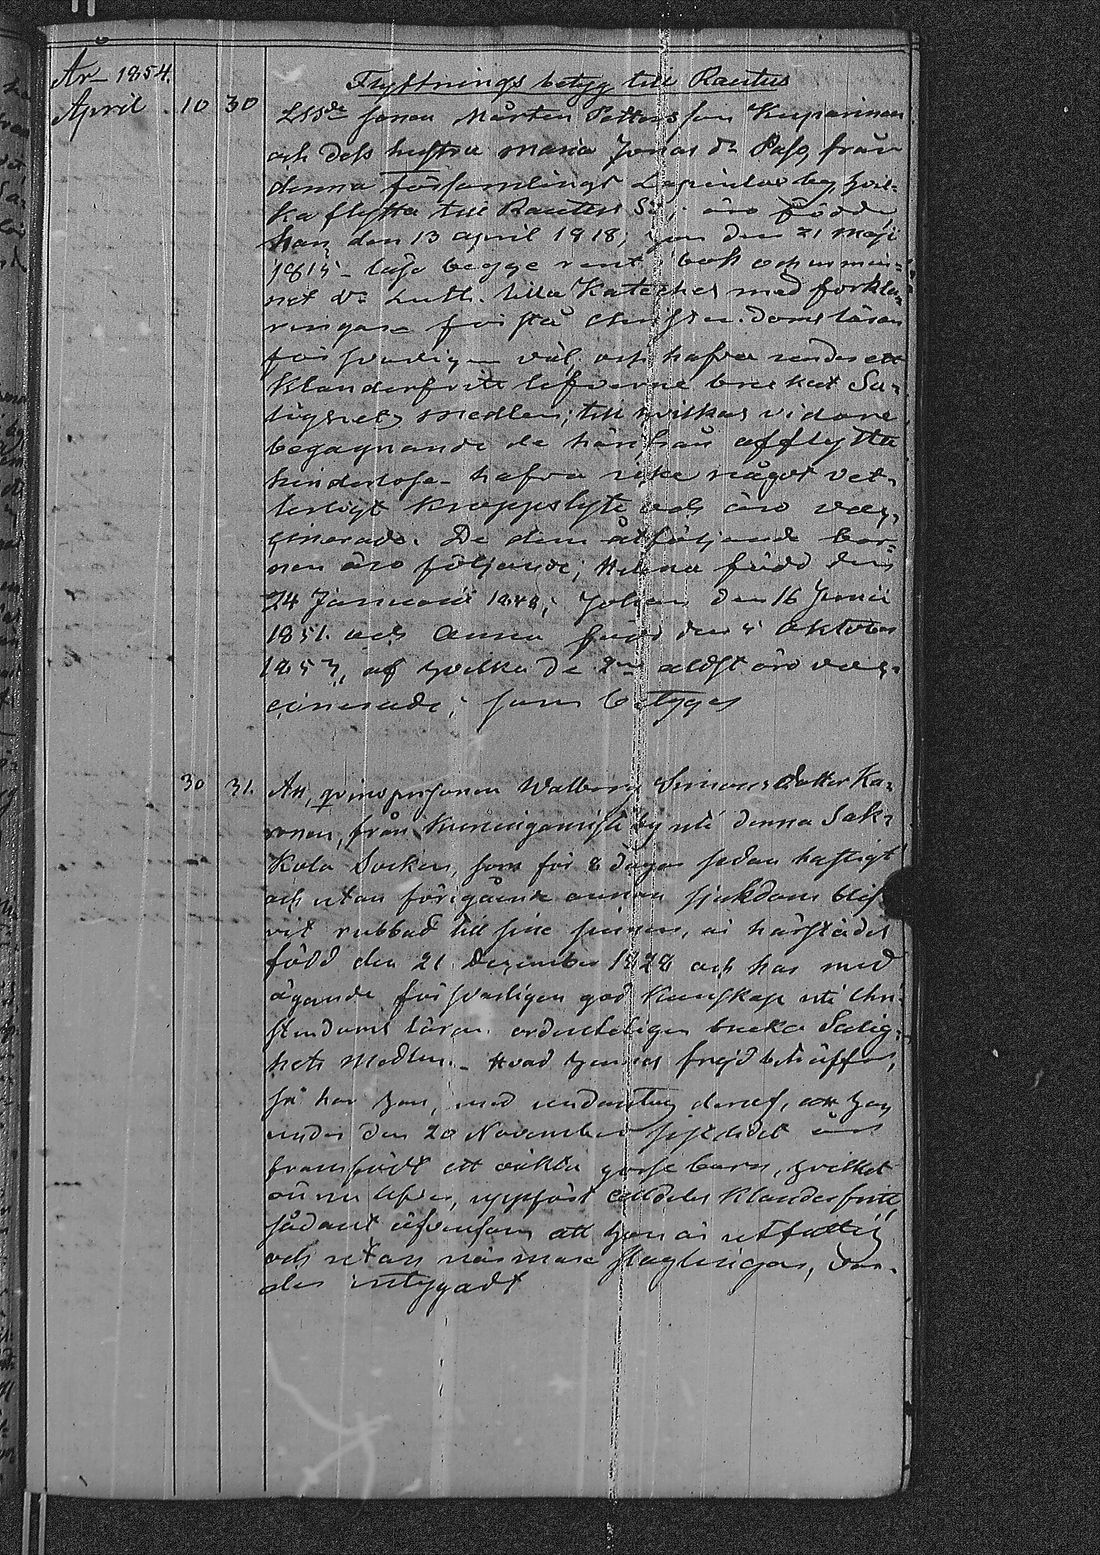 År 1854.
Flyttnings betyg till Rautus
April 10 30 Ldbde sonen Mårten Petters son Kuparinen
och dess hustru Maria Jonas dr Paso från
denna församlings Lapinlax by, hvil-
ka flytta till Rautus Sn, äro födde,
han den 13 April 1818, hon den 21 Maji
1815 - läsa begge rent i bok och ur min-
net Dr Luth. lilla Kateches med förkla-
ringar förstå Christendoms läran
försvarligen väl, och hafva under ett
klanderfritt lefverne brukat Sa-
lighets medlen; till hvilkas vidare
begagnande de härifrån afflytta
hinderlöse - hafva icke något vet-
terligt kroppslyte och äro vac-
cinerade. De dem åtföljande bar-
nen äro följande; Helena född den
24 Januari 1848; Johan den 16 Junii
1851. och Anna född den 5 Oktober
1853, af hvilka de 2ne äldst äro vac-
cinerade; som betyges
30 31. Att, qvinspersonen Walborg Simons Dotter Ka-
ronen, från Kuninganristi by uti denna Sak-
kola Socken, som för 8 dagar sedan häftigt
och utan föregående annan sjukdom blif-
vit rubbad till sine sinnen, är härstädes
född den 21 December 1828 och har med
ägande försvarligen god kunskap uti Chri-
stendoms läran ordenteligen bruka Salig-
hets Medlen. - Hvad hennes frejd beträffar,
så har hon, med undantag deraf, att hon
under den 20 November sistledet års
framfödt ett oäkta gosse barn, hvilket
ännu lefver, uppfört alldeles klanderfritt,
sådant äfvensom att hon är utfattig
och utan närmare slägtingar, var-
der intygadt